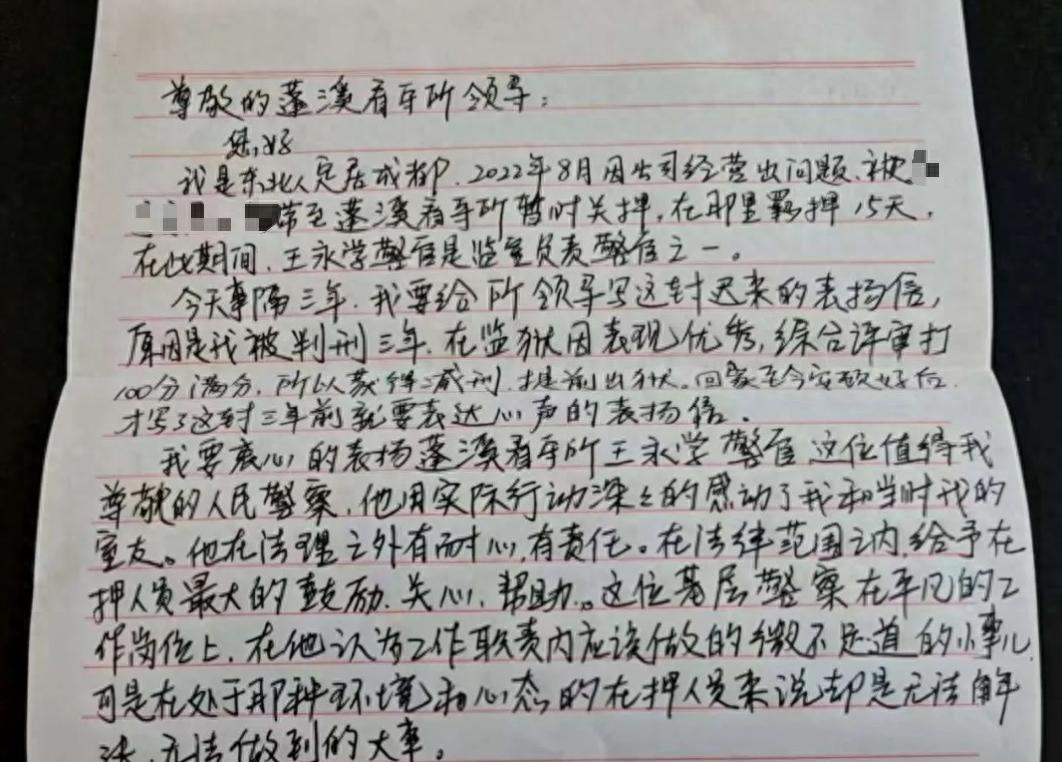 尊敬的蓬溪看守所领导：
您好
我是东北人定居成都．2022年8月因公司经营出问题、被
带至蓬溪看守所暂时关押，在那里羁押15天，
在此期间，王永学警官是监室负责警官之一。
今天事隔三年．我要给所领导写这封迟来的表扬信，
原因是我被判刑三年．在监狱因表现优秀，综合评审打
100分满分，所以获得减刑．提前出狱。回家至今安顿好后．
才写了这封三年前就要表达心声的表扬信．
我要衷心的表扬蓬溪看守所王永学警官这位值得我
尊敬的人民警察．他用实际行动深深的感动了我和当时我的
室友。他在法理之外有耐心，有责任。在法律范围之内，给予在
押人员最大的鼓励．关心、帮助。这位基层警察在平凡的工
作岗位上．在他认为工作职责内应该做的微不足道的小事儿
可是在处于那种环境和心态的在押人员来说却是无法解
决．无法做到的大事。